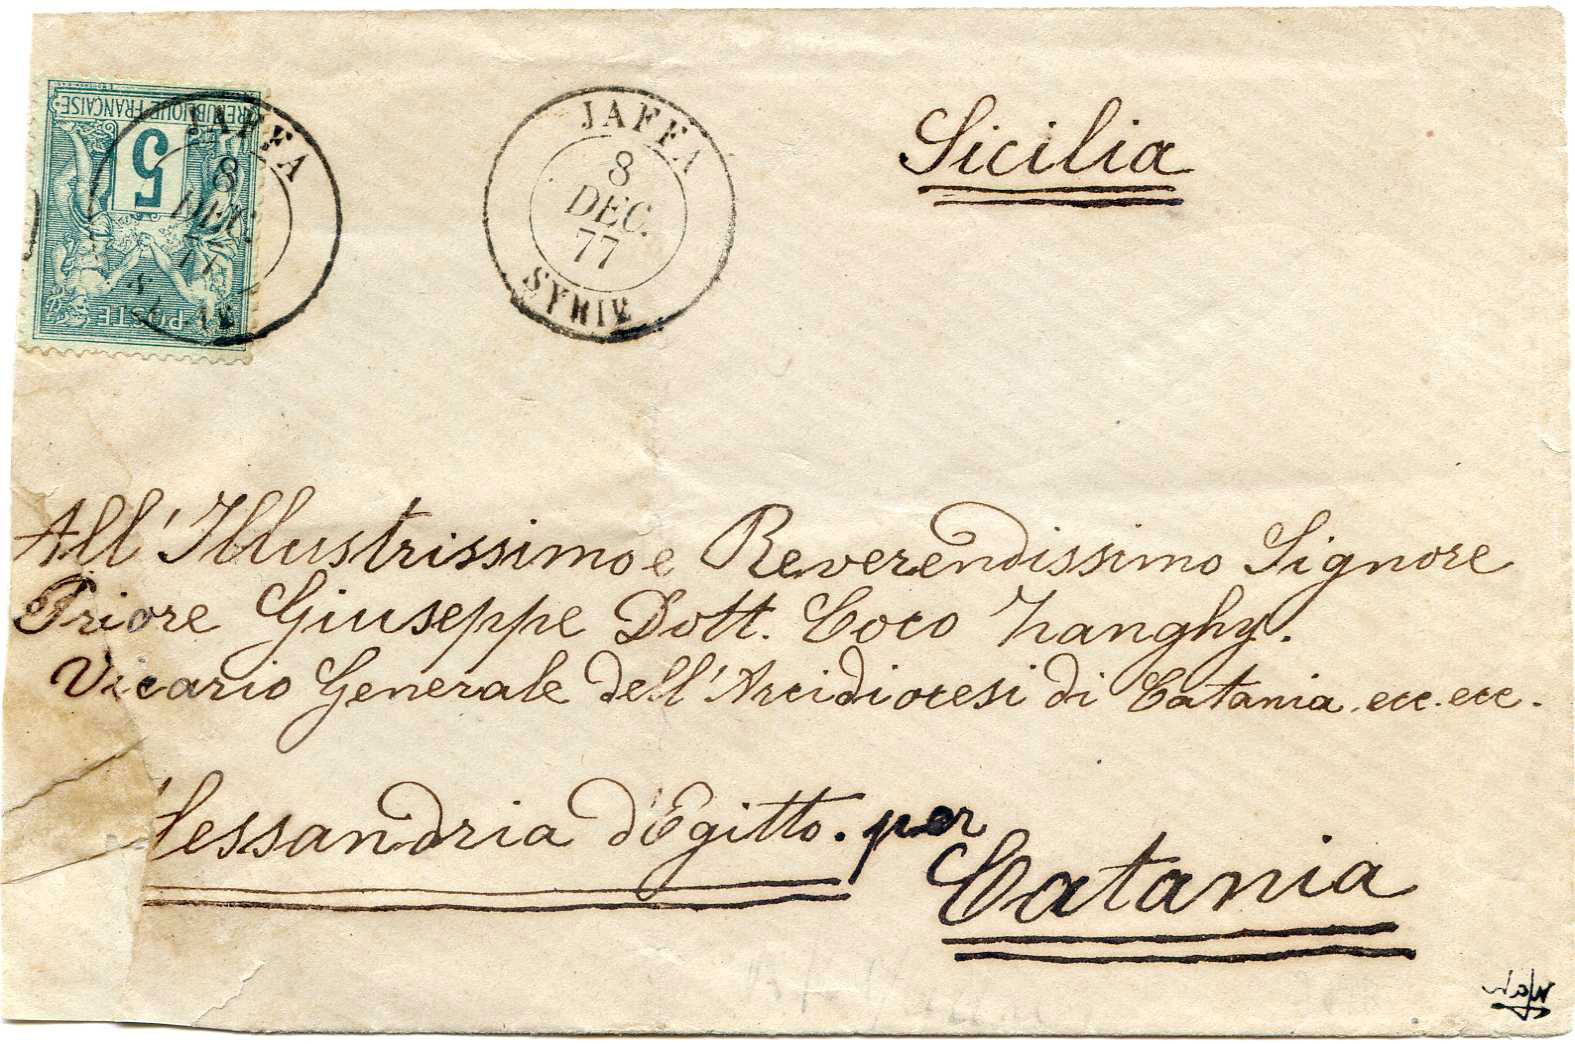 REPUBLIQUE FRANÇAISE
5
POSTE
JAFFA
8
DEC.
77
SYRIE
JAFFA
8
DEC.
77
SYRIE
Sicilia
All'Illustrissimo e Reverendissimo Signore
Priore Giuseppe Dott. Coco Zanghy.
Vicario Generale dell'Arcidiocesi di Catania. ecc. ecc.
lessandria d'Egitto. per
Catania